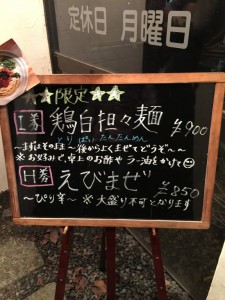 定休日 月曜日
☆☆限定☆☆
I券 鶏白担々麺 ¥900
とりぱいたんたんめん
～まずはそのまま～後からよくまぜてどうぞ～
※お好みで、卓上のお酢やラー油をかけて☺
H券 えびまぜ ¥850
～ぴり辛～ ※大盛り不可となります